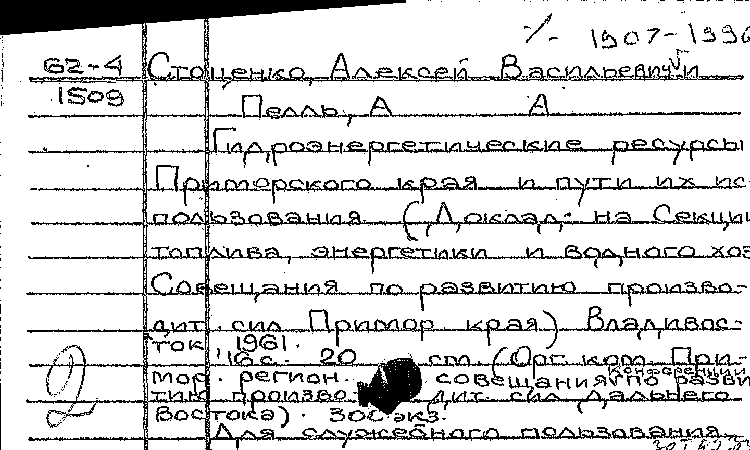 1907-1996
62-4 Стоценко, Алексей Васильевич и
1509 Пелль, А А
Гидроэнергетические ресурсы
Приморского края и пути их ис-
пользования (Доклад: на Секции
топлива, энергетики и водного хоз
Совещания по развитию произво-
дит. сил Примор края) Владивос-
ток 1961.
16 с. 20 см. (Орг. ком. При-
конференции
мор. регион. совещания по разви
тию произво дит. сил Дальнего
Востока). 300 экз.
2 Для служебного пользования